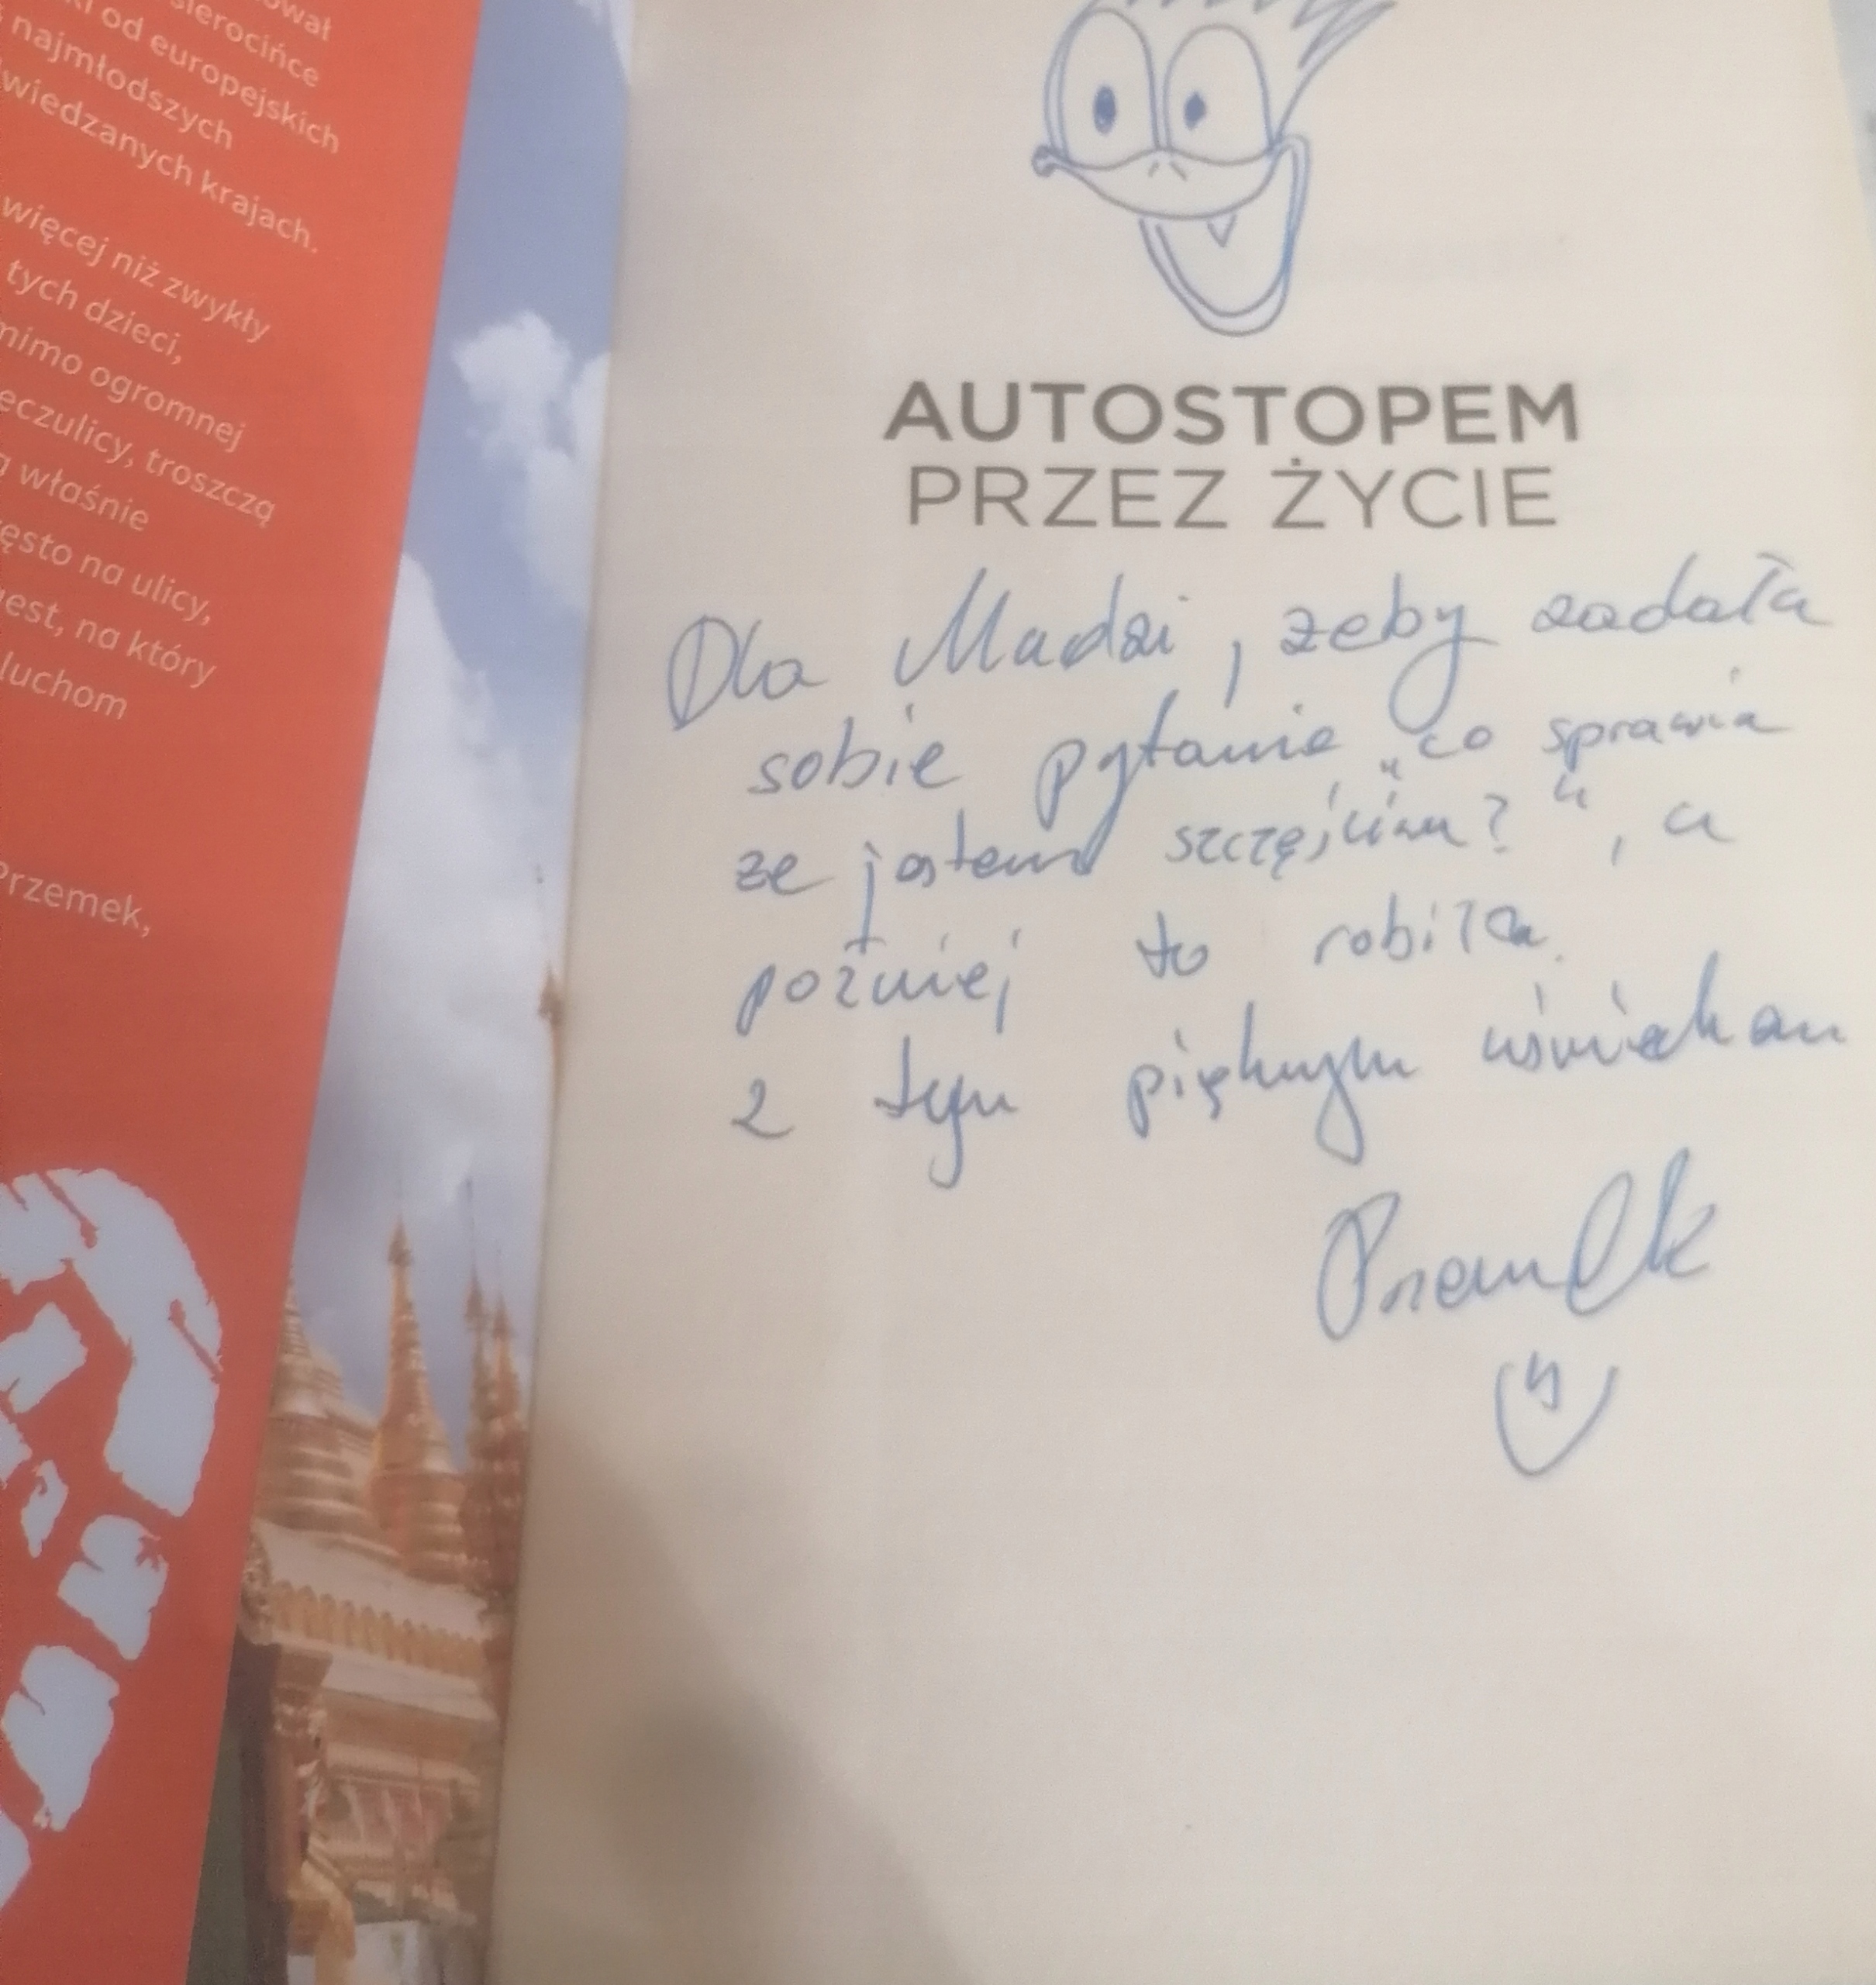 ował
sierocińce
ki od europejskich
najmłodszych
wiedzanych krajach.
więcej niż zwykły
tych dzieci,
mimo ogromnej
eczulicy, troszczą
ą właśnie
ęsto na ulicy,
est, na który
luchom
Przemek,
AUTOSTOPEM
PRZEZ ŻYCIE
Dla Madzi, żeby zadała
sobie pytanie „co sprawia
że jestem szczęśliwa?", a
później to robiła
z tym pięknym uśmiechem
Przemek